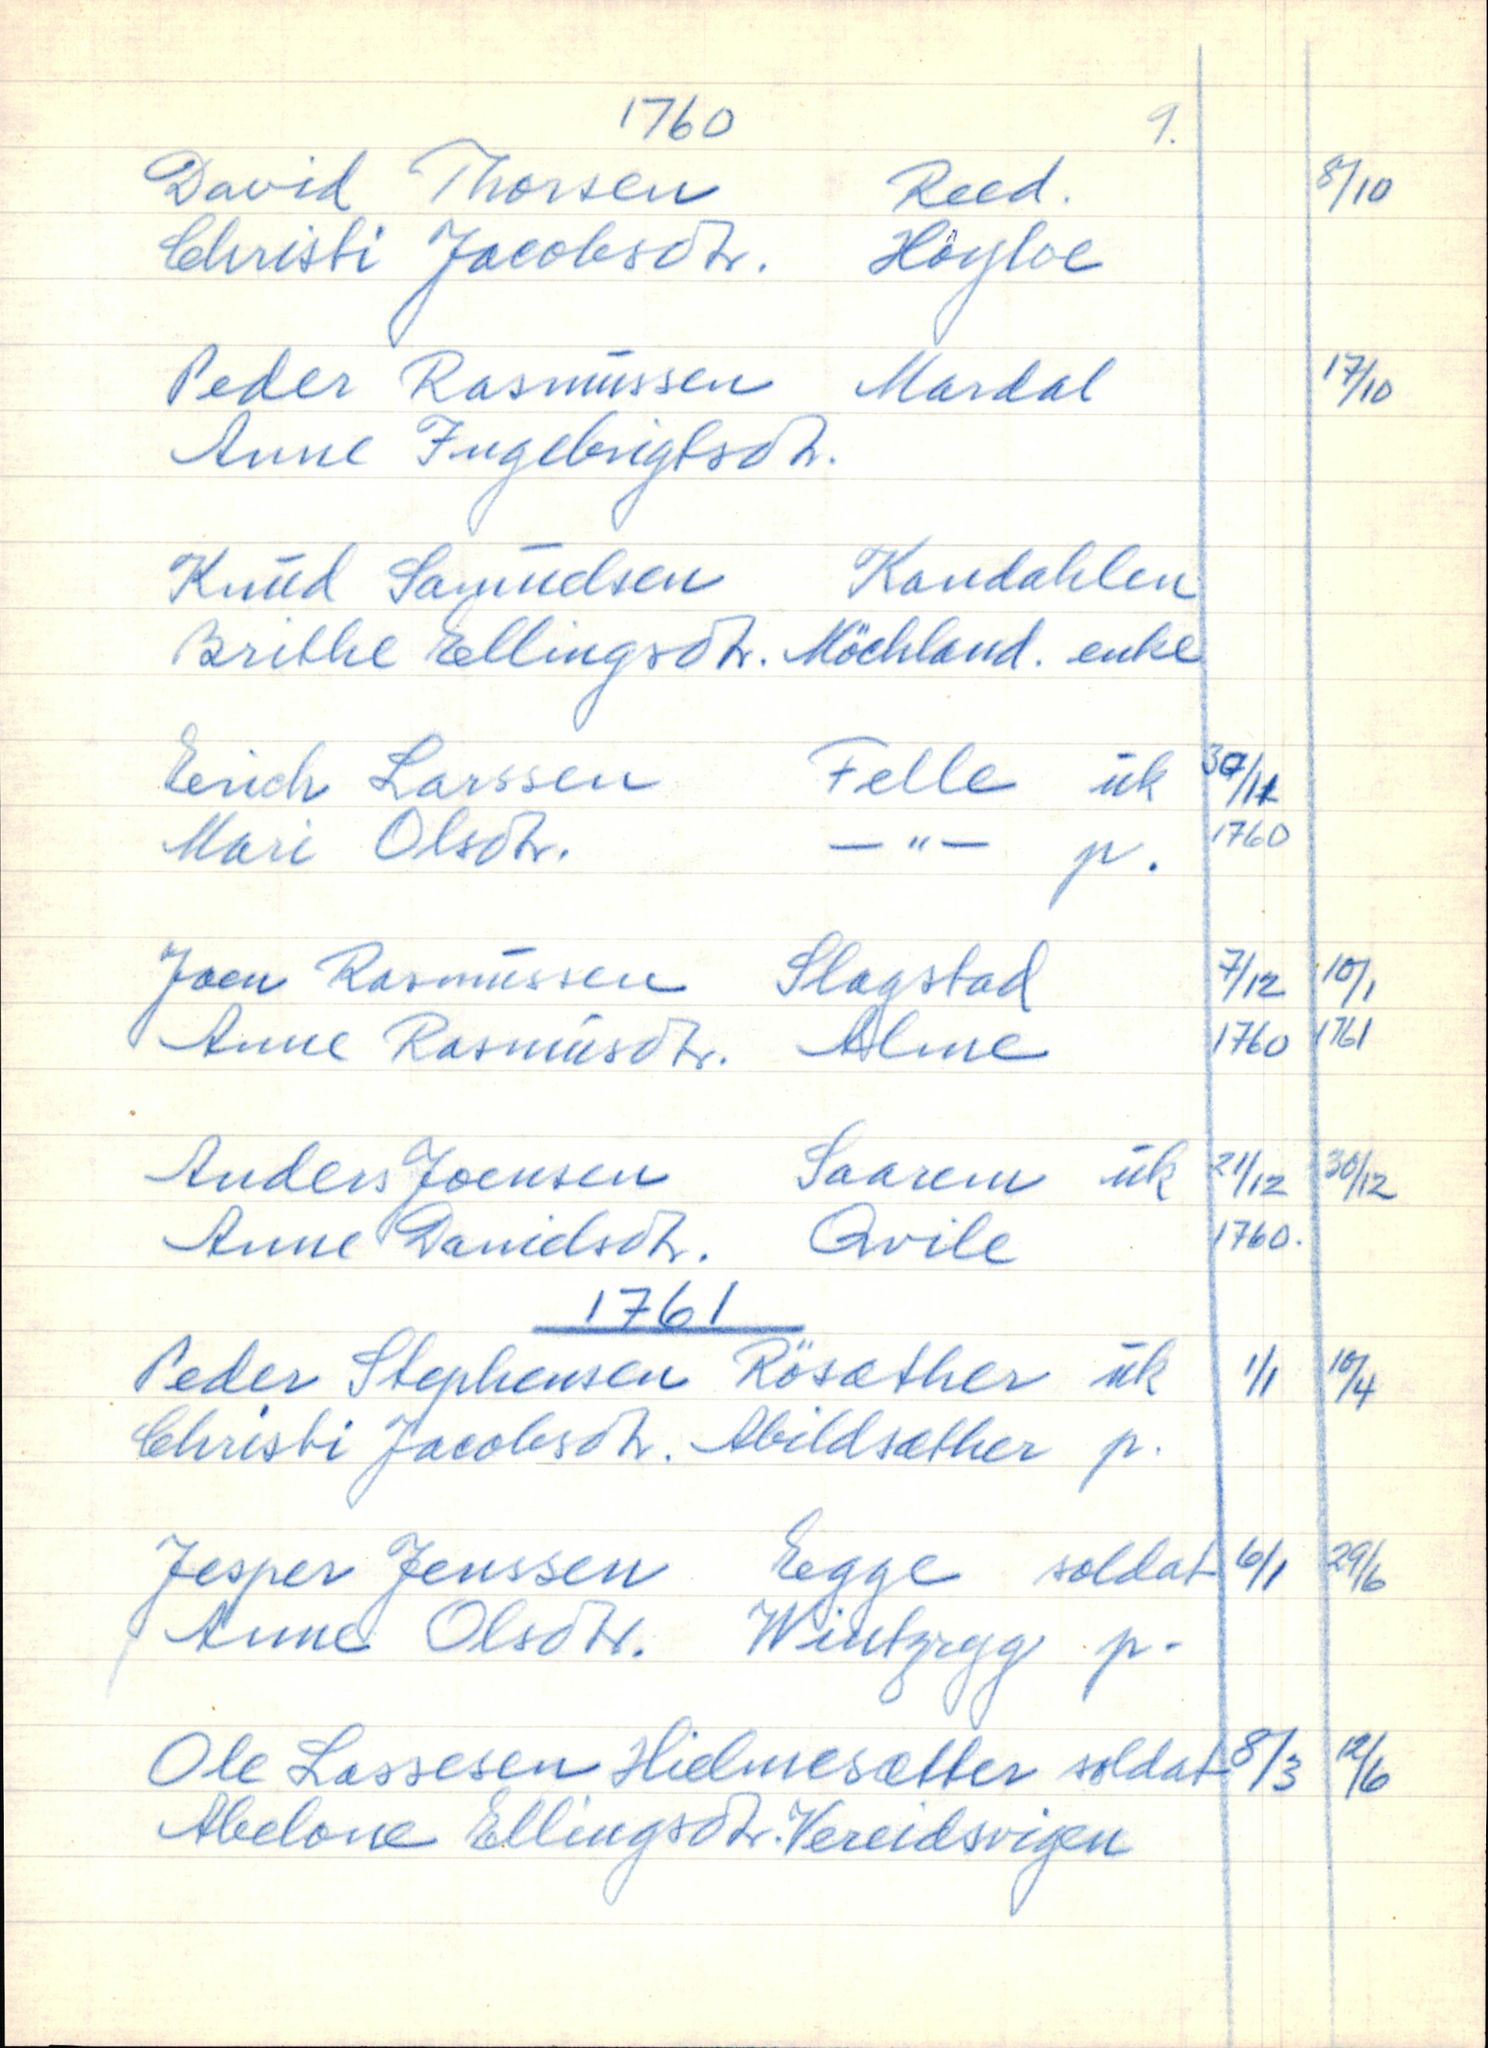 1760 9.
David Thorsen Reed. 8/10
Christi Jacobsdtr. Höyloe
Peder Rasmussen Mardal 17/10
Anne Ingebrigtsdtr.
Knud Samuelsen Kandahlen
Brithe Ellingsdtr. Möchland. enke
Erich Larssen Felle uk
Mari Olsdtr. — " — p. 1760
Joen Rasmussen Slagstad 7/12 10/1
Anne Rasmusdtr. Alme 1760 1761
Anders Joensen Saarem uk 21/12 30/12
Anne Danielsdtr. Qvile 1760.
1761
Peder Stephensen Rösæther uk 1/1 10/4
Christi Jacobsdtr. Abildsæther p.
Jesper Jenssen Egge soldat 6/1 29/6
Anne Olsdtr. p.
Ole Lassesen Hielmesætter soldat 8/3 12/6
Abelone Ellingsdtr. Vereidsvigen